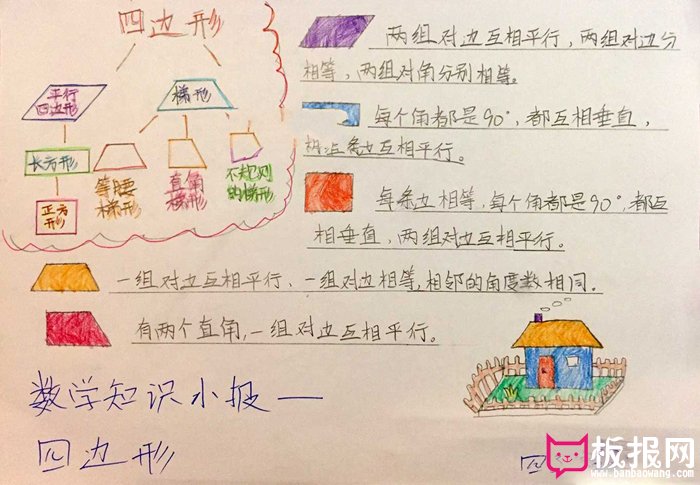 四边形
平行
四边形
梯形
长方形
正方
形
等腰
梯形
直角
梯形
不规则
的梯形
两组对边互相平行，两组对边分
相等，两组对角分别相等。
每个角都是90°，都互相垂直，
边互相平行。
每条边相等，每个角都是90°，都互
相垂直，两组对边互相平行。
一组对边互相平行、一组对边相等，相邻的角度数相同。
有两个直角，一组对边互相平行。
数学知识小报—
四边形
四
板报网
www.banbaowang.com